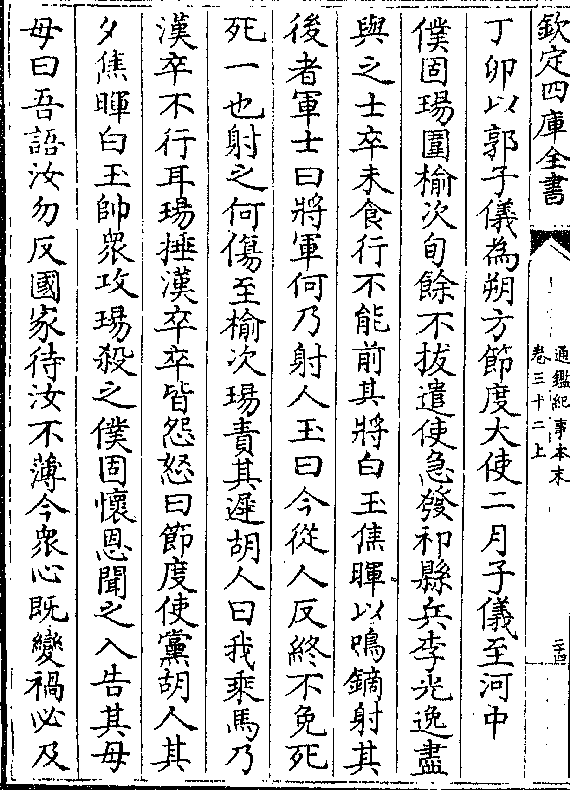 欽定四庫全書
通鑑紀事本末
卷三十二上
二十四
丁卯以郭子儀為朔方節度大使二月子儀至河中
僕固瑒圍榆次旬餘不拔遣使急發祁縣兵李光逸盡
與之士卒未食行不能前其將白玉焦暉以鳴鏑射其
後者軍士曰將軍何乃射人玉曰今從人反終不免死
死一也射之何傷至榆次瑒責其遲胡人曰我乘馬乃
漢卒不行耳瑒捶漢卒卒皆怨怒曰節度使黨胡人其
夕焦暉白玉帥衆攻瑒殺之僕固懷恩聞之入告其母
母曰吾語汝勿反國家待汝不薄今衆心既變禍必及